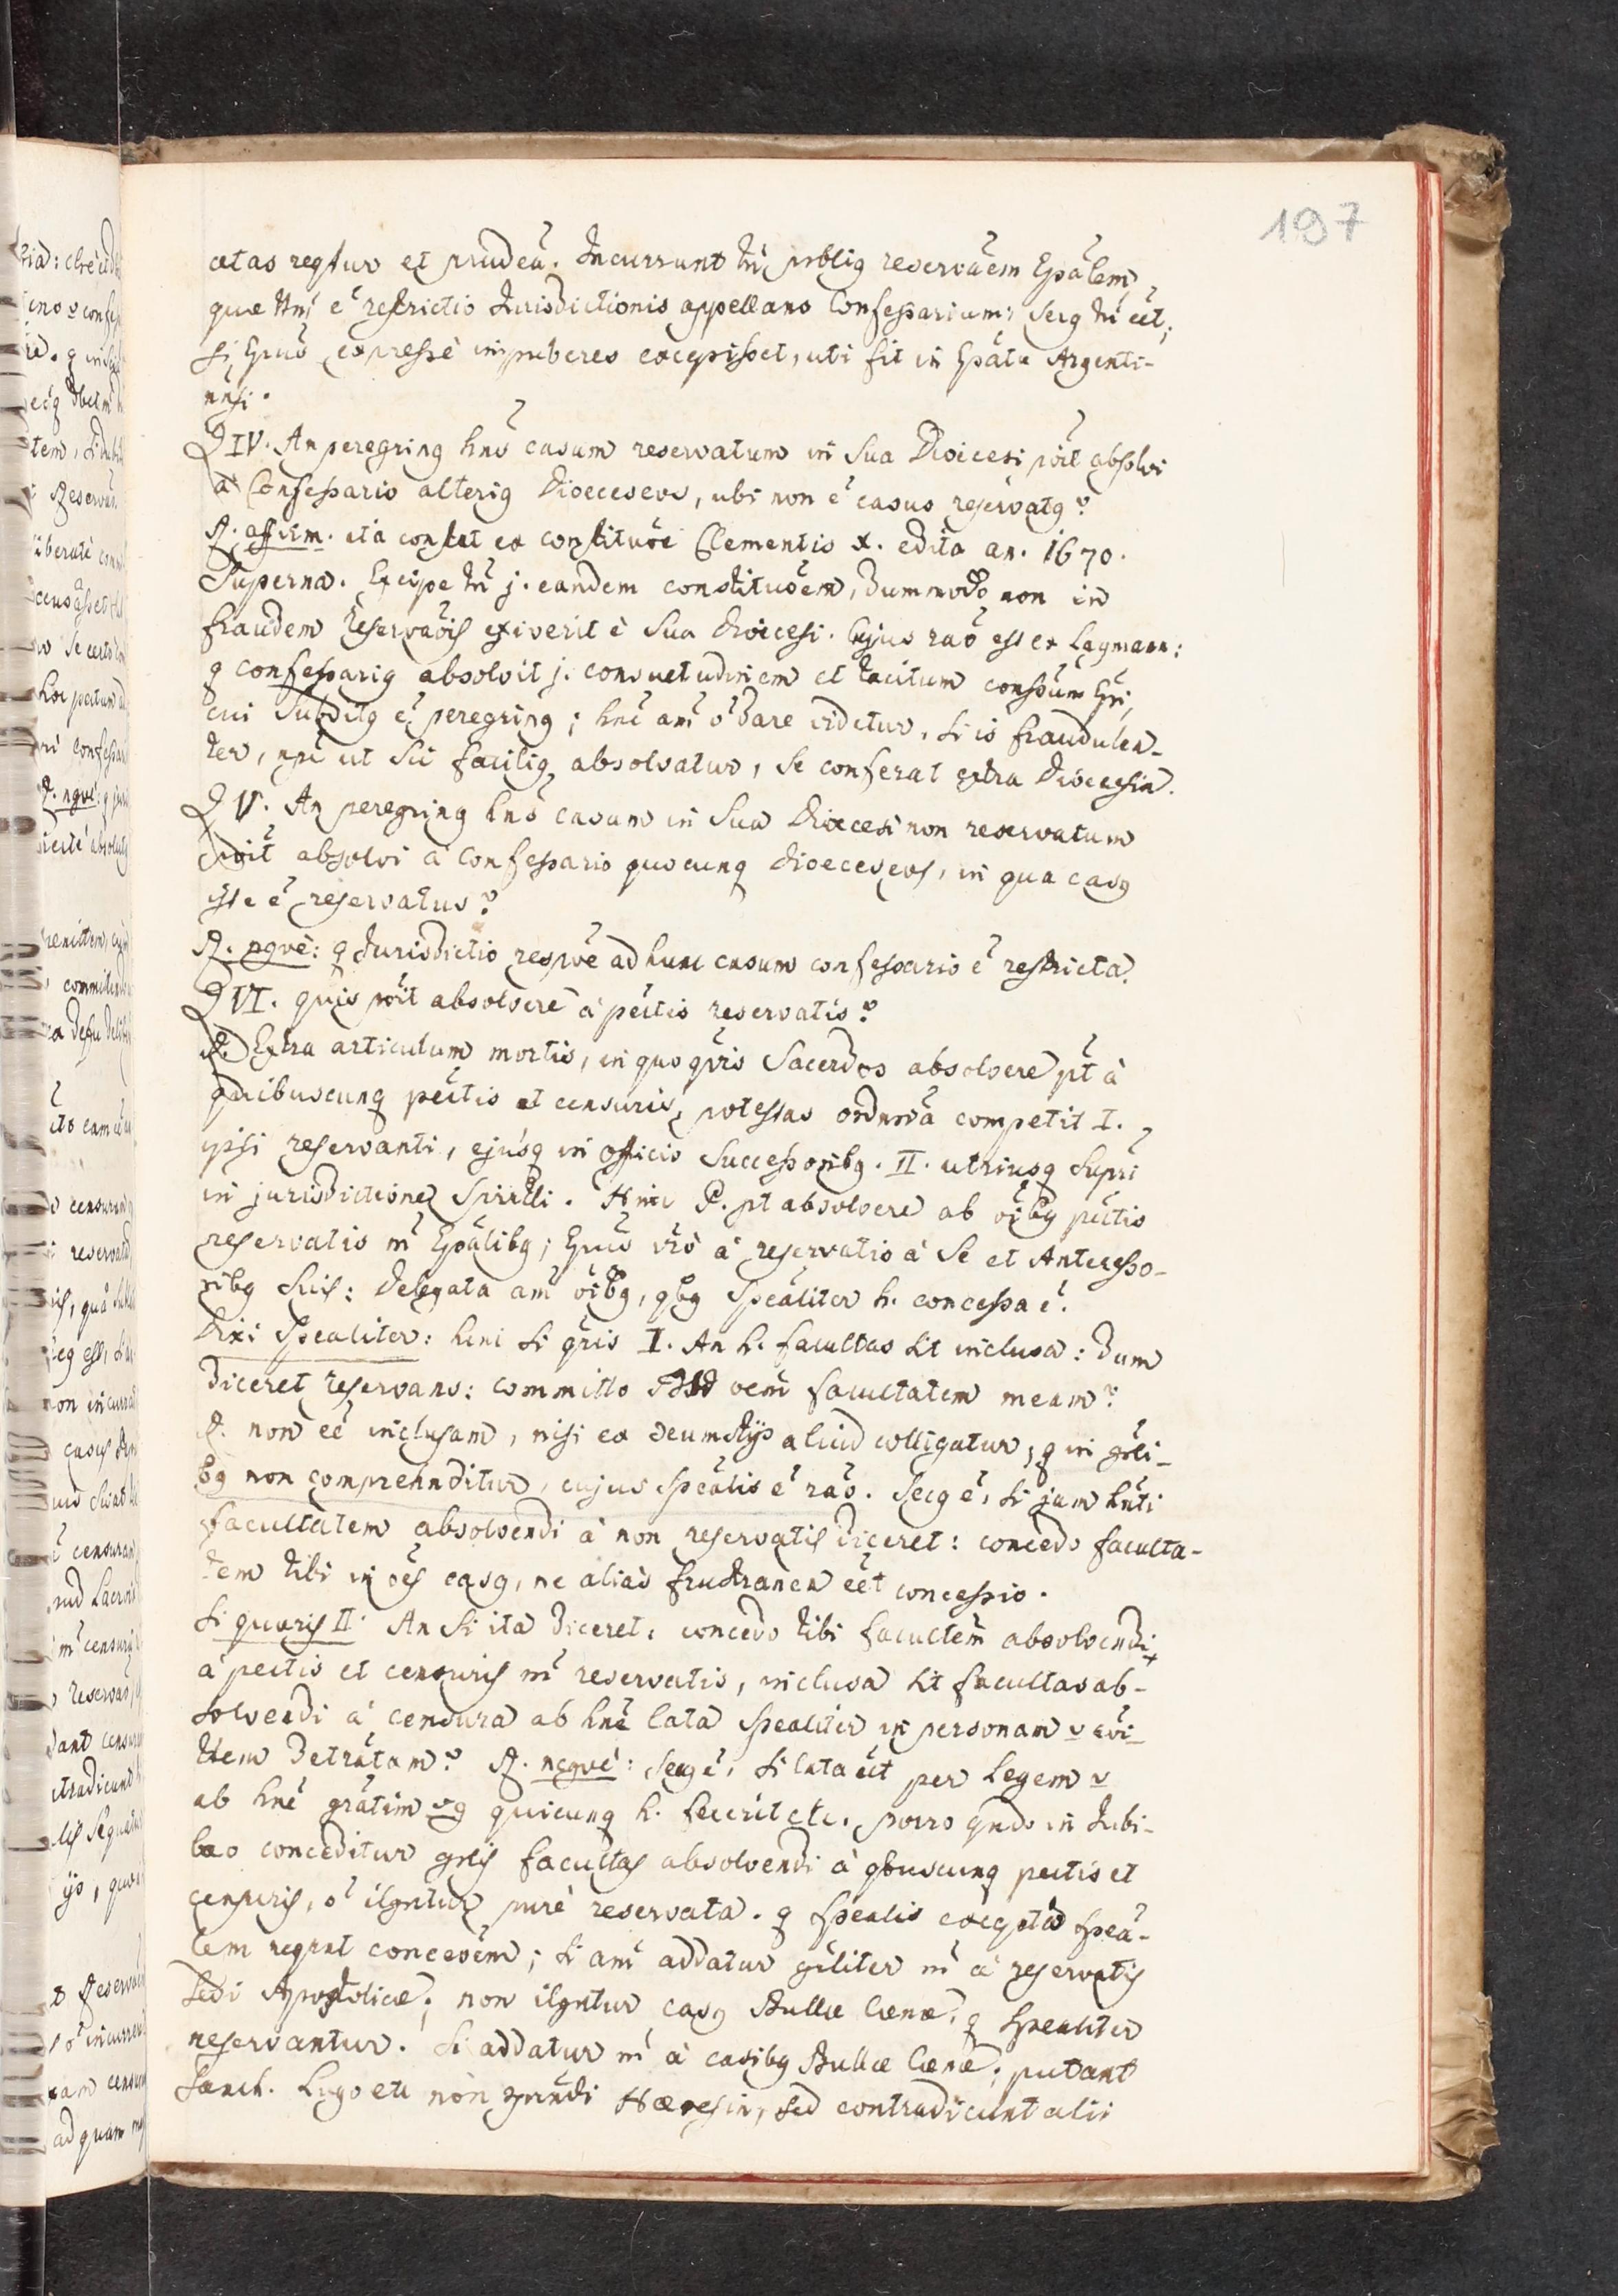 197
ætas reqrtur et prudeã. Incurrunt tñ impubig reservãem Epãlem,
quæ tm̃ ẽ restrictio Jurisdictionis appellans Confessarium: secg tñ eẽt,
si Epus expressè impuberes excepisset, uti fit in Epãtu Argenti-
nñsi.
Q IV. An peregring hñs casum reservatum in sua Dioecesi põit absolvi
à Confessario alterig Dioeceseos, ubi non ẽ casus reservatg?
R. affirm. ita constat ex constituõe Clementis X. edita an. 1670.
Superna. Excipe tñ j. eandem constituõem, dummodo non in
fraudem reservãois exiverit è sua dioecesi. Cujus raõ est ex Laymann:
q confessarig absolvit j. consuetudinem et tacitum consẽsum Epi,
cui subditg ẽ peregring; hnc am̃ õ dare videtur, si is fraudulen-
ter, npe ut sic facilig absolvatur, se conferat extra dioecesin.
Q V. An peregring hñs casum in sua dioecesi non reservatum
põit absolvi à Confessario cujuscunq dioeceseos, in qua casg
iste ẽ reservatus?
R. ngvè: q Jurisdictio respvè ad hunc casum confessario ẽ restricta.
Q VI. quis põit absolvere à pctis reservatis?
R. Extra articulum mortis, in quo qvis Sacerdos absolvere pt à
quibuscunq pctis et censuris, potestas ordnria competit I.
ipsi reservanti, ejusq in officio successoribg. II. utriusq supri
in jurisdictione spirtli. Hinc P. pt absolvere ab oĩbg pctis
reservatis m̃ Epãlibg; Epus vrò à reservatis à se et Antecesso-
ribg suis: Delegata am̃ oĩbg, qbg speãliter h. concessa ẽ.
Dixi spealiter: hinc si qris I. An h. facultas sit inclusa: dum
diceret reservans: committo oem̃ facultatem meam?
R. non eẽ inclusam, nisi ex Ccumstijs aliud colligatur, q in grli-
bg non comprehnditur, cujus speãlis ẽ raõ. Secg ẽ, si jam hñti
facultatem absolvendi à non reservatis diceret: concedo faculta-
tem tibi in oẽs casg, ne aliàs frustranea eẽt concessio.
Si quæris II. An si ita diceret, concedo tibi facultẽm absolvendi
à pectis et censuris m̃ reservatis, inclusa sit facultas ab-
solvendi à censura ab hñe lata spealiter in personam v cõi-
tem detrãtam? R. negvè: secg ẽ, si lata eẽt per Legem v
ab hñe grãtim vg quicunq h. fecerit etc. porro qndo in Jubi-
læo conceditur grlis facultas absolvendi à qbuscunq pectis et
censuris, õ ilgntur purè reservata. q spealis exceptio speã-
lem reqrat concesõem; si am̃ addatur gñliter m̃ à reservatis
Sedi Apostolicæ; non ilgntur casg Bullæ Cænæ, q spealiter
reservantur. Si addatur m̃ à casibg Bullæ Cænæ; putant
Sanch. Lugo etc non Hæresin, sed contradicunt alii